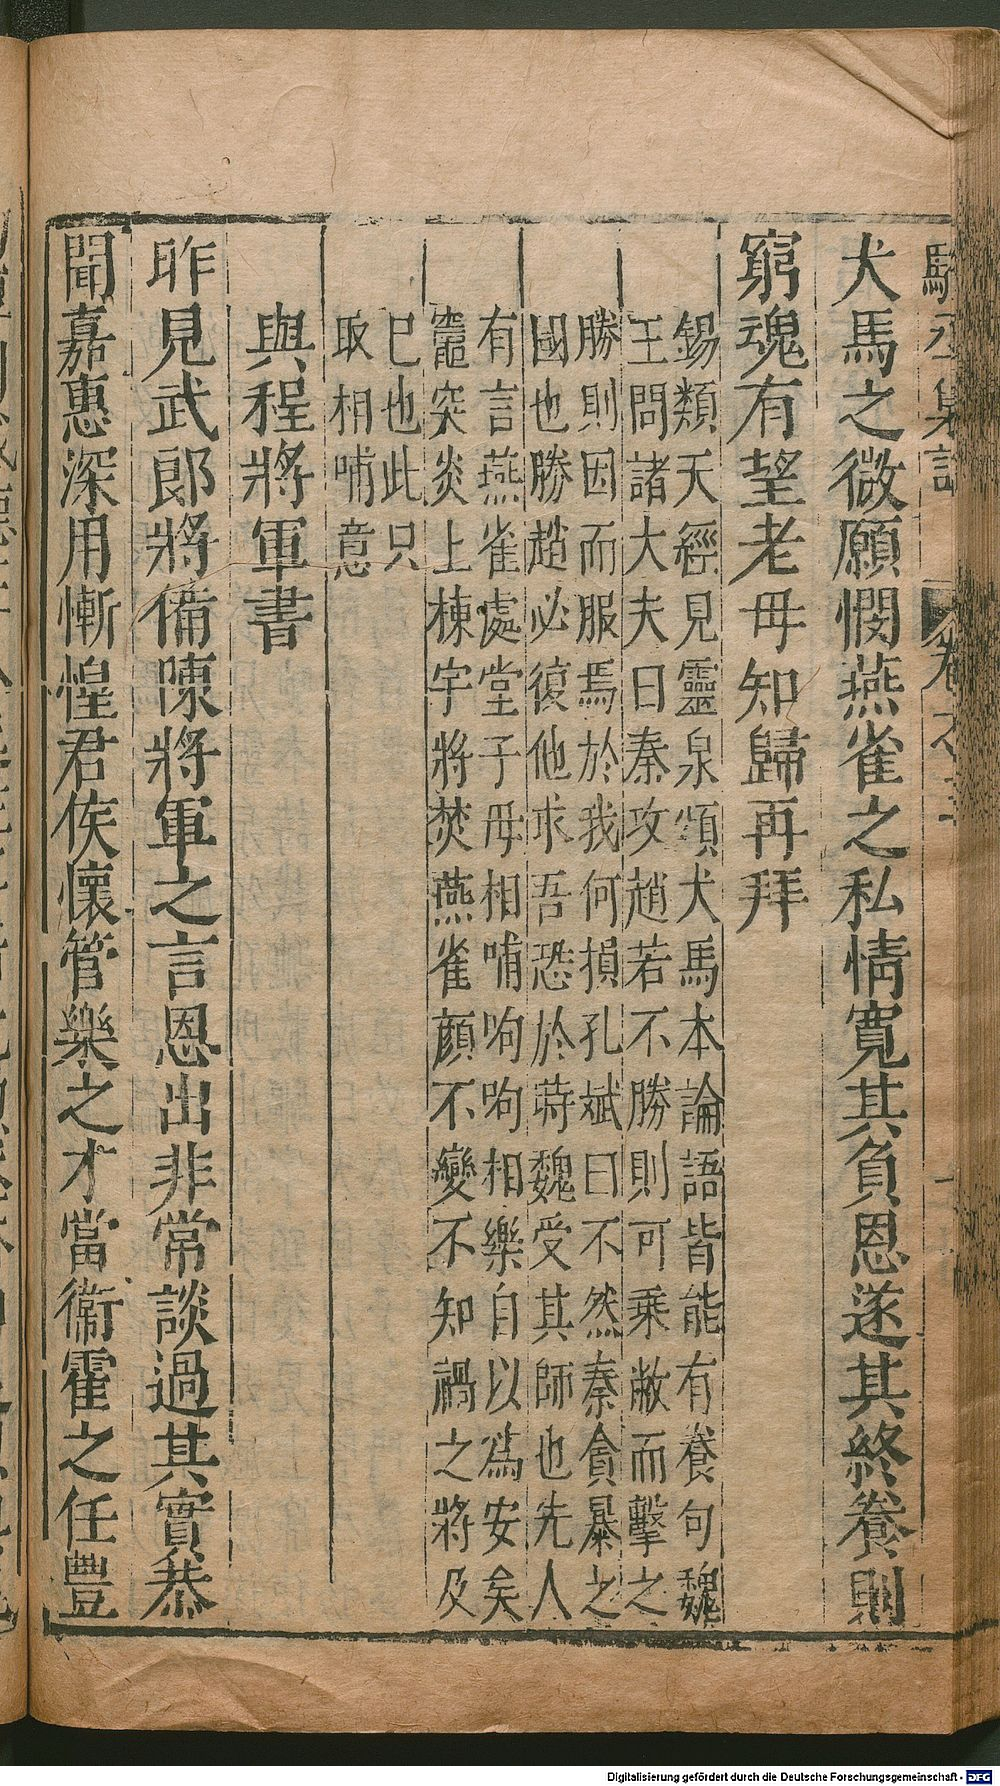 犬馬之微願憫燕雀之私情寬其負恩遂其終養則
窮魂有望老母知歸再拜
錫類天經見靈泉頌犬馬本論語皆能有養句魏
王問諸大夫曰秦攻趙若不勝則可乘敝而擊之
勝則因而服焉於我何損孔斌曰不然秦貪暴之
國也勝趙必復他求吾恐於時魏受其師也先人
有言燕雀處堂子母相哺呴呴相樂自以爲安矣
竈突炎上棟宇將焚燕雀顔不變不知禍之將及
已也此只
取相哺意
與程將軍書
昨見武郎將備陳將軍之言恩出非常談過其實恭
聞嘉惠深用慚惶君侯懷管樂之才當衛霍之任豐
Digitalisierung gefördert durch die Deutsche Forschungsgemeinschaft - DFG